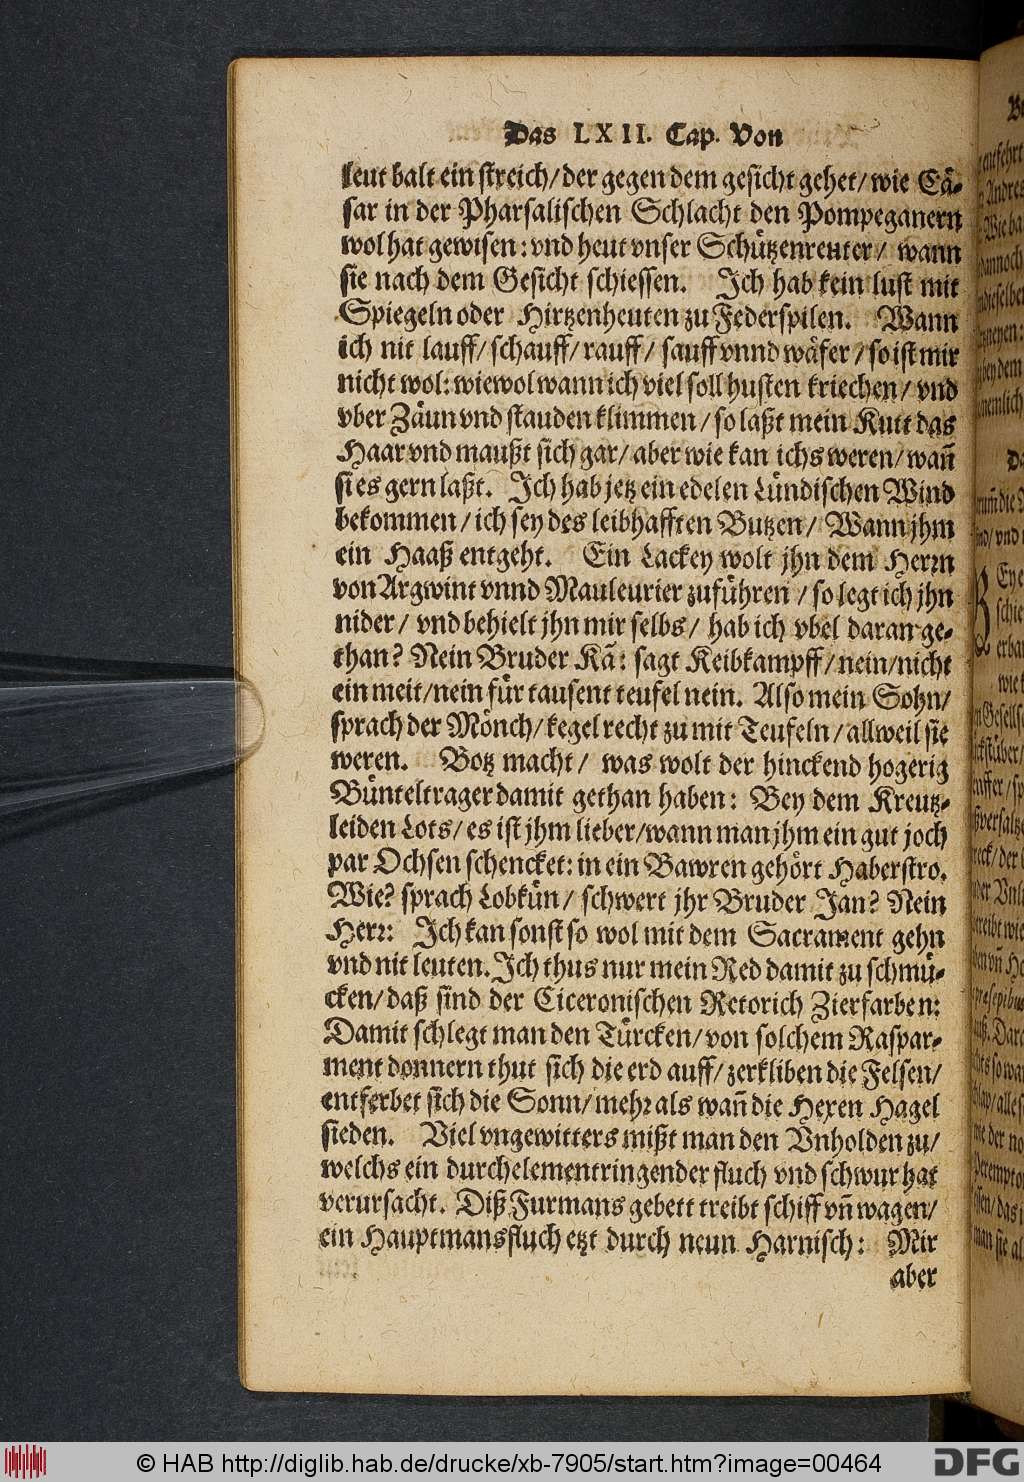 Das LXII. Cap. Von
leut balt ein streich/der gegen dem gesicht gehet/wie Cä-
sar in der Pharsalischen Schlacht den Pompeganern
wol hat gewisen: vnd heut vnser Schützenreuter/ wann
sie nach dem Gesicht schiessen. Ich hab kein lust mit
Spiegeln oder Hirtzenheuten zu Federspilen. Wann
ich nit lauff/schauff/rauff/ sauff vnnd wäfer/so ist mir
nicht wol: wiewol wann ich viel soll husten kriechen/vnd
vber Zäun vnd stauden klimmen/so laßt mein Kutt das
Haar vnd maußt sich gar/aber wie kan ichs weren/wañ
sies gern laßt. Ich hab jetz ein edelen Lündischen Wind
bekommen/ich sey des leibhafften Butzen/ Wann jhm
ein Haaß entgeht. Ein Lackey wolt jhn dem Herrn
von Argwint vnnd Mauleurier zuführen/so legt ich jhn
nider/ vnd behielt jhn mir selbs/ hab ich vbel daran ge-
than? Nein Bruder Kã: sagt Keibkampff/nein/nicht
ein meit/nein für tausent teufel nein. Also mein Sohn/
sprach der Mönch/kegel recht zu mit Teufeln/allweil sie
weren. Botz macht/ was wolt der hinckend hogerig
Bünteltrager damit gethan haben: Bey dem Kreutz-
leiden Lots/es ist jhm lieber/wann man jhm ein gut joch
par Ochsen schencket: in ein Bawren gehört Haberstro.
Wie? sprach Lobkün/ schwert jhr Bruder Jan? Nein
Herr: Ich kan sonst so wol mit dem Sacrament gehn
vnd nit leuten. Ich thus nur mein Red damit zu schmü-
cken/daß sind der Ciceronischen Retorich Zierfarben:
Damit schlegt man den Türcken/von solchem Raspar-
ment donnern thut sich die erd auff/zerkliben die Felsen/
entferbet sich die Sonn/mehr als wañ die Hexen Hagel
sieden. Viel vngewitters mißt man den Vnholden zu/
welchs ein durchelementringender fluch vnd schwur hat
verursacht. Diß Furmans gebett treibt schiff vñ wagen/
ein Hauptmansfluch etzt durch neun Harnisch: Mir
aber
© HAB http://diglib.hab.de/drucke/xb-7905/start.htm?image=00464
DFG